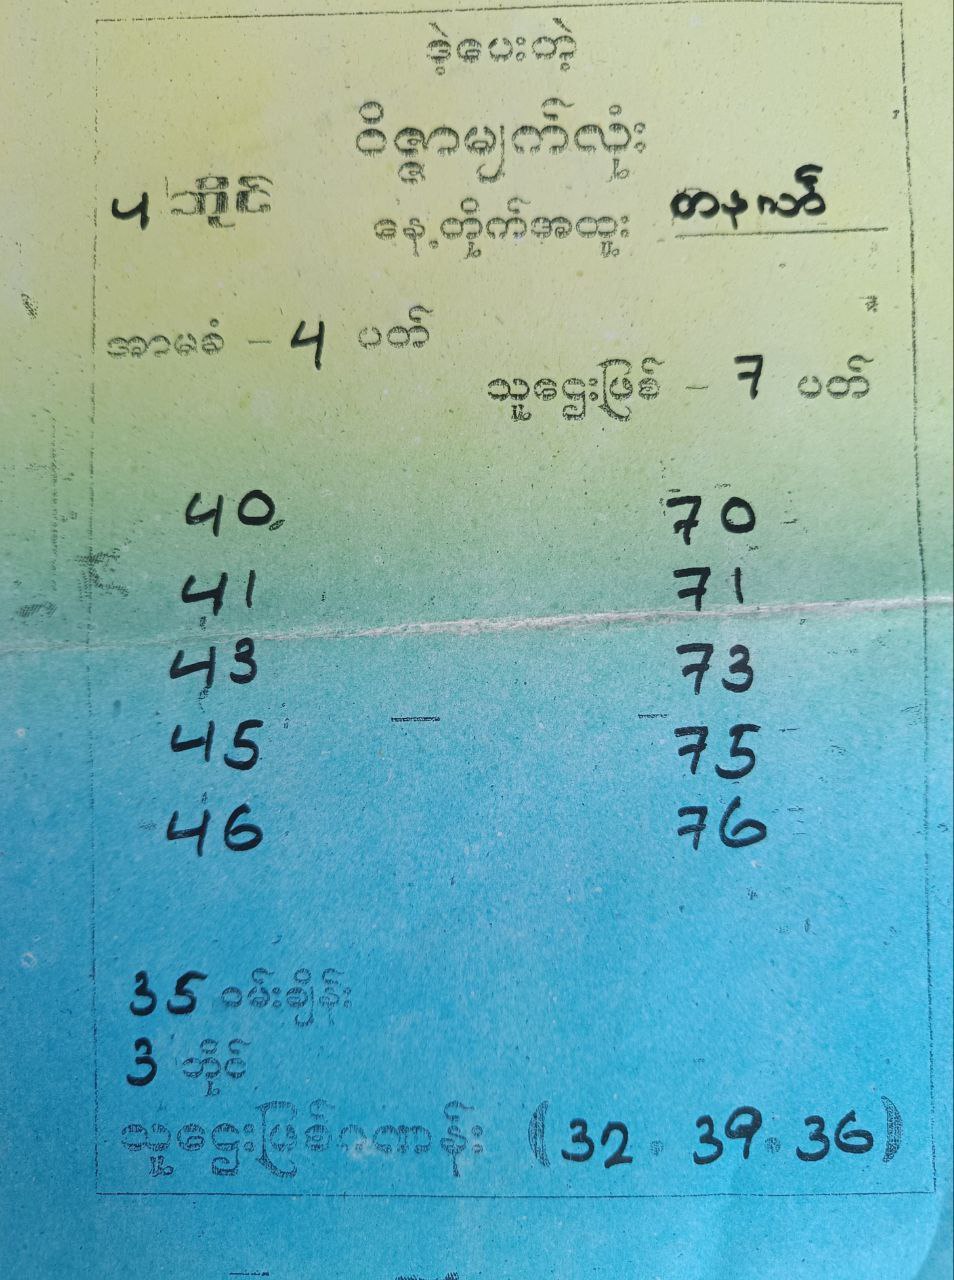 ဒဲ့ပေးတဲ့
ဝိဇ္ဇာမျက်လုံး
4 ဘိုင်
နေ့တိုက်အထူး တနင်္လာ
အာမခံ - 4 ပတ်
သူဌေးဖြစ် - 7 ပတ်
40 70
41 71
43 73
45 75
46 76
35 ဝမ်းချိန်း
3 ဘိုင်
သူဌေးဖြစ်ဂဏန်း (32. 39. 36)